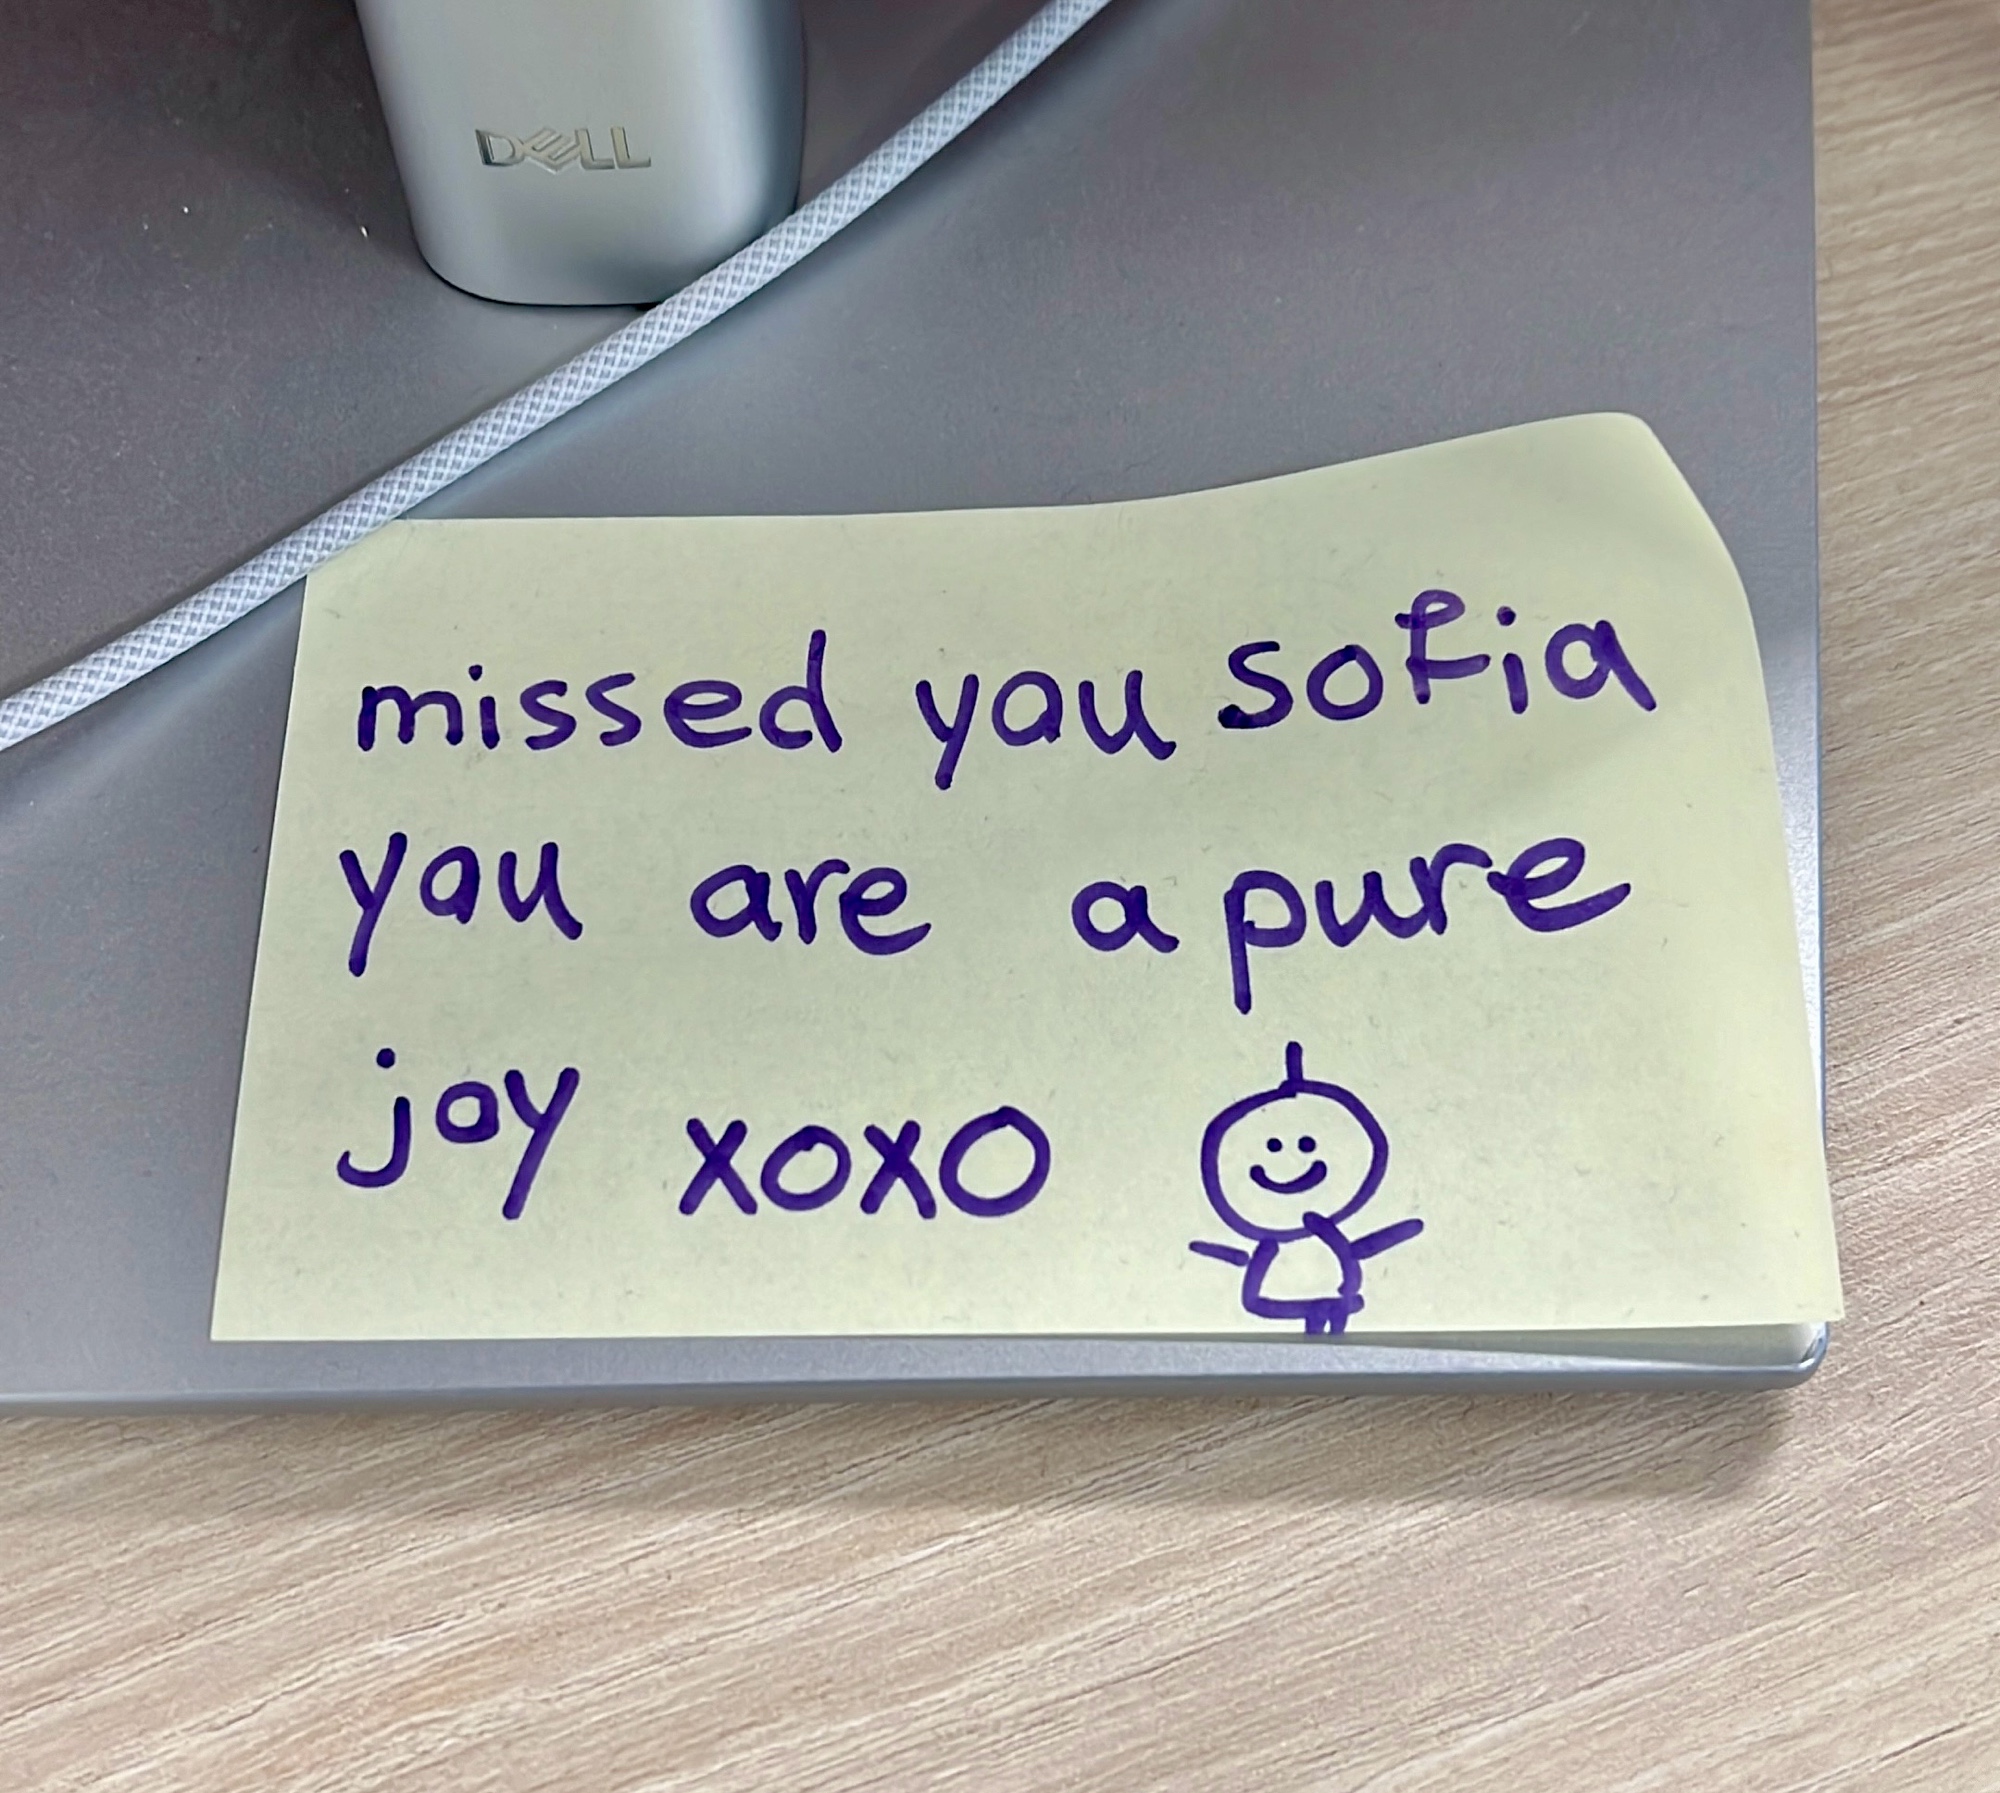 DELL
missed you sofia
you are a pure
joy xoxo